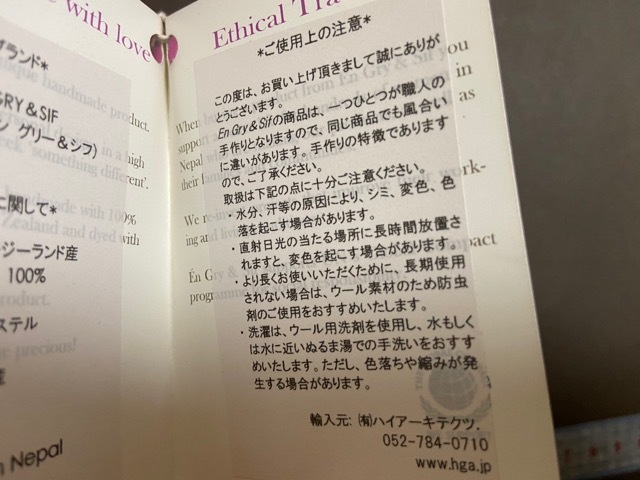 with love
ランド*
GRY & SIF
グリー＆シフ)
product.
high
'something different'.
に関して*
with 100%
Zealand and dyed with
ジーランド産
100%
product.
ステル
precious!
Nepal
Ethical Tra
*ご使用上の注意*
この度は、お買い上げ頂きまして誠にありが
とうございます。
En Gry & Sifの商品は、一つひとつが職人の
手作りとなりますので、同じ商品でも風合い
に違いがあります。手作りの特徴であります
ので、ご了承ください。
取扱は下記の点に十分ご注意ください。
・水分、汗等の原因により、シミ、変色、色
落を起こす場合があります。
・直射日光の当たる場所に長時間放置さ
れますと、変色を起こす場合があります。
・より長くお使いいただくために、長期使用
されない場合は、ウール素材のため防虫
剤のご使用をおすすめいたします。
・洗濯は、ウール用洗剤を使用し、水もしく
は水に近いぬるま湯での手洗いをおすす
めいたします。ただし、色落ちや縮みが発
生する場合があります。
you
in
as
work-
輸入元: ㈲ハイアーキテクツ.
052-784-0710
www.hga.jp